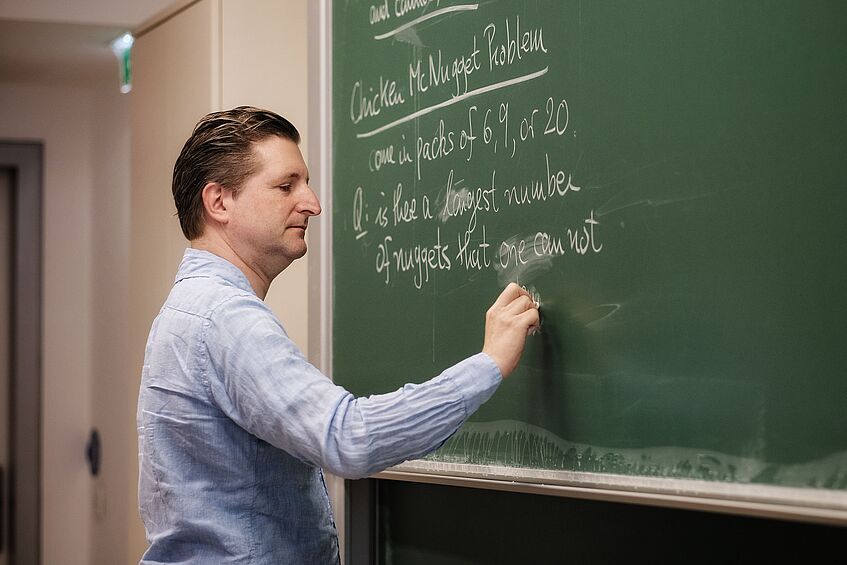 and
Chicken McNugget Problem
come in packs of 6, 9, or 20.
Q: is there a largest number
of nuggets that one can not